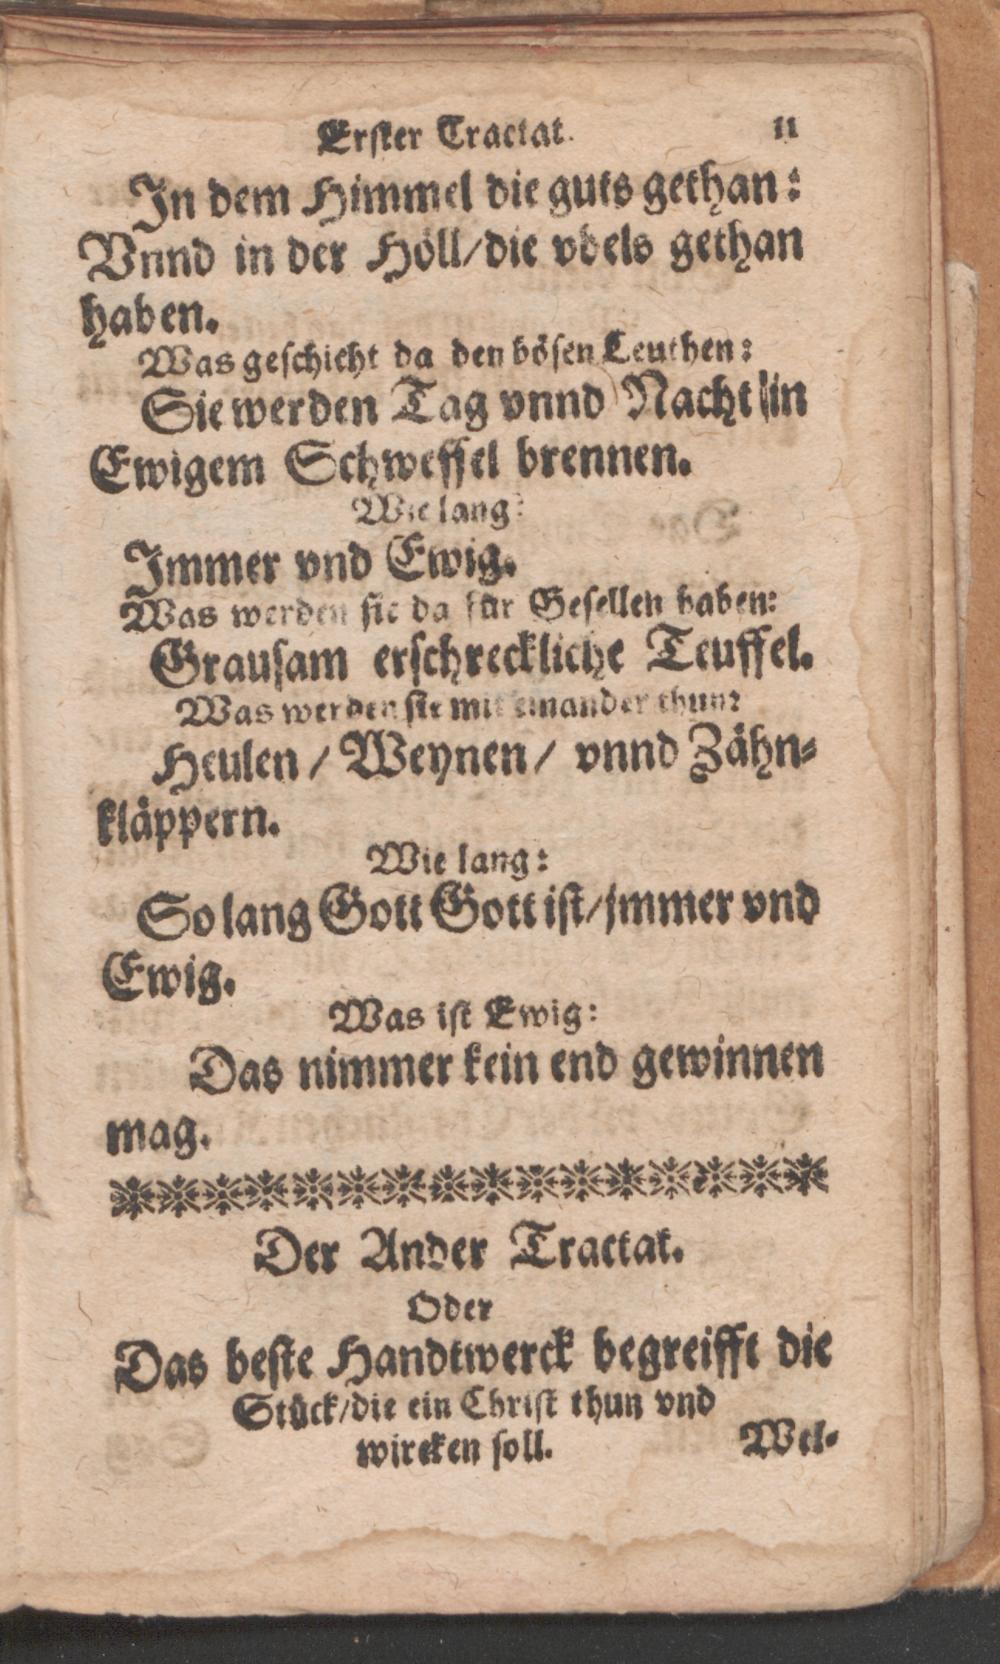 Erster Tractat. 11
In dem Himmel die guts gethan:
Vnnd in der Höll/die vbels gethan
haben.
Was geschicht da den bösen Leuthen:
Sie werden Tag vnnd Nacht in
Ewigem Schweffel brennen.
Wie lang:
Immer vnd Ewig.
Was werden sie da für Gesellen haben:
Grausam erschreckliche Teuffel.
Was werden sie mit einander thun:
Heulen / Weynen / vnnd Zähn-
kläppern.
Wie lang:
So lang Gott Gott ist/jmmer vnd
Ewig.
Was ist Ewig:
Das nimmer kein end gewinnen
mag.
Der Ander Tractat.
Oder
Das beste Handtwerck begreifft die
Stück/die ein Christ thun vnd
wircken soll.
Wel-